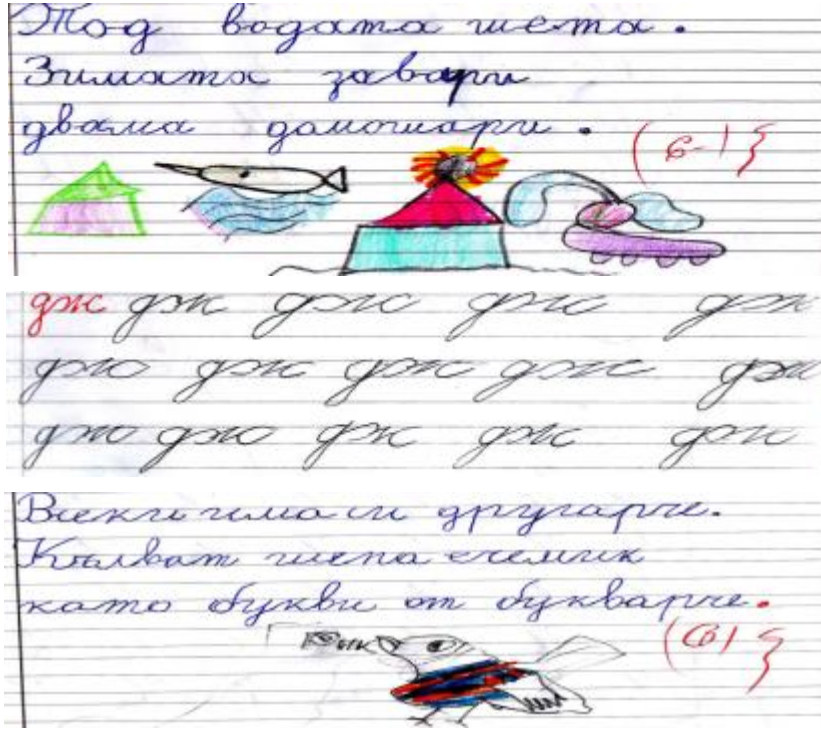 Под водата шета.
Зимата завари
двама домошари.
(6-)
дж дж дж дж дж
дж дж дж дж дж
дж дж дж дж дж
Всеки има си другарче.
Кълват шепа ечемик
като букви от букварче.
(6)